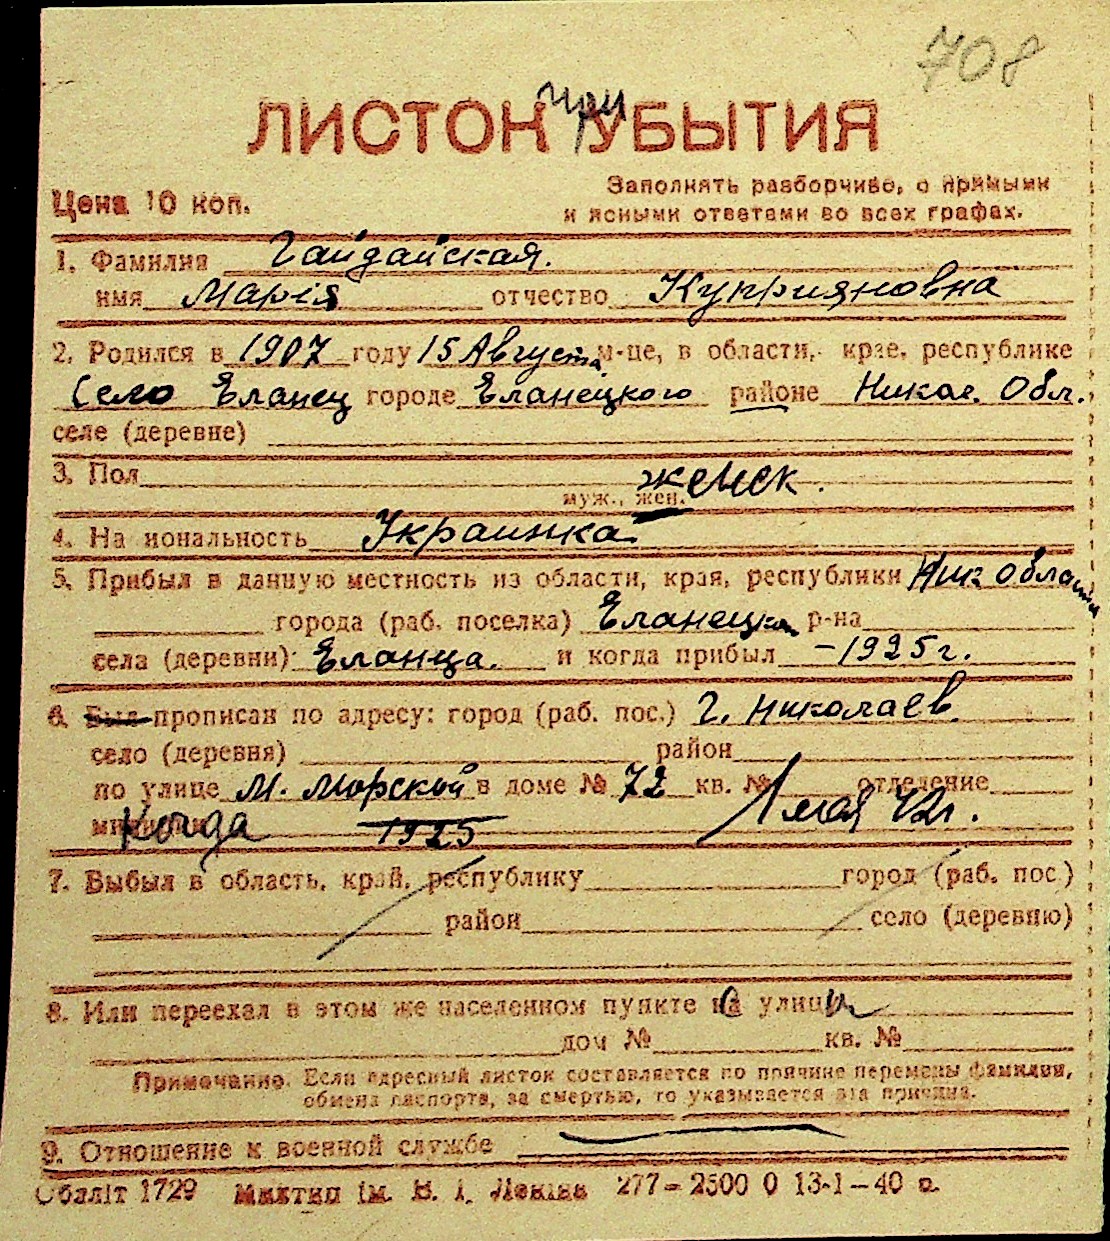 708
ЛИСТОК при УБЫТИЯ
Цена 10 коп.
Заполнять разборчиво, с прямыми
и ясными ответами во всех графах.
1. Фамилия Гайдайская.
имя Марія отчество Куприяновна
2. Родился в 1907 году 15 Августа м-це, в области, крае, республике
Село Еланец городе Еланецкого районе Никол. Обл.
селе (деревне)
3. Пол женск.
муж., жен.
4. На иональность Украинка
5. Прибыл в данную местность из области, края, республики Ник области
города (раб. поселка) Еланецка р-на
села (деревни) Еланца. и когда прибыл -1925г.
6. Был прописан по адресу: город (раб. пос.) г. Николаев
село (деревня) район
по улице М. Морской в доме № 72 кв. № отделение
Когда 1925 1 мая 42г.
7. Выбыл в область, край, республику город (раб. пос.)
район село (деревню)
8. Или переехал в этом же населенном пункте с улицы
дом № кв. №
Примечание. Если адресный листок составляется по причине перемены фамилии,
обмена паспорта, за смертью, то указывается эта причина.
9. Отношение к военной службе
Обліт 1729 ім. В. І. Леніна 277-2500 0 13-1-40 р.